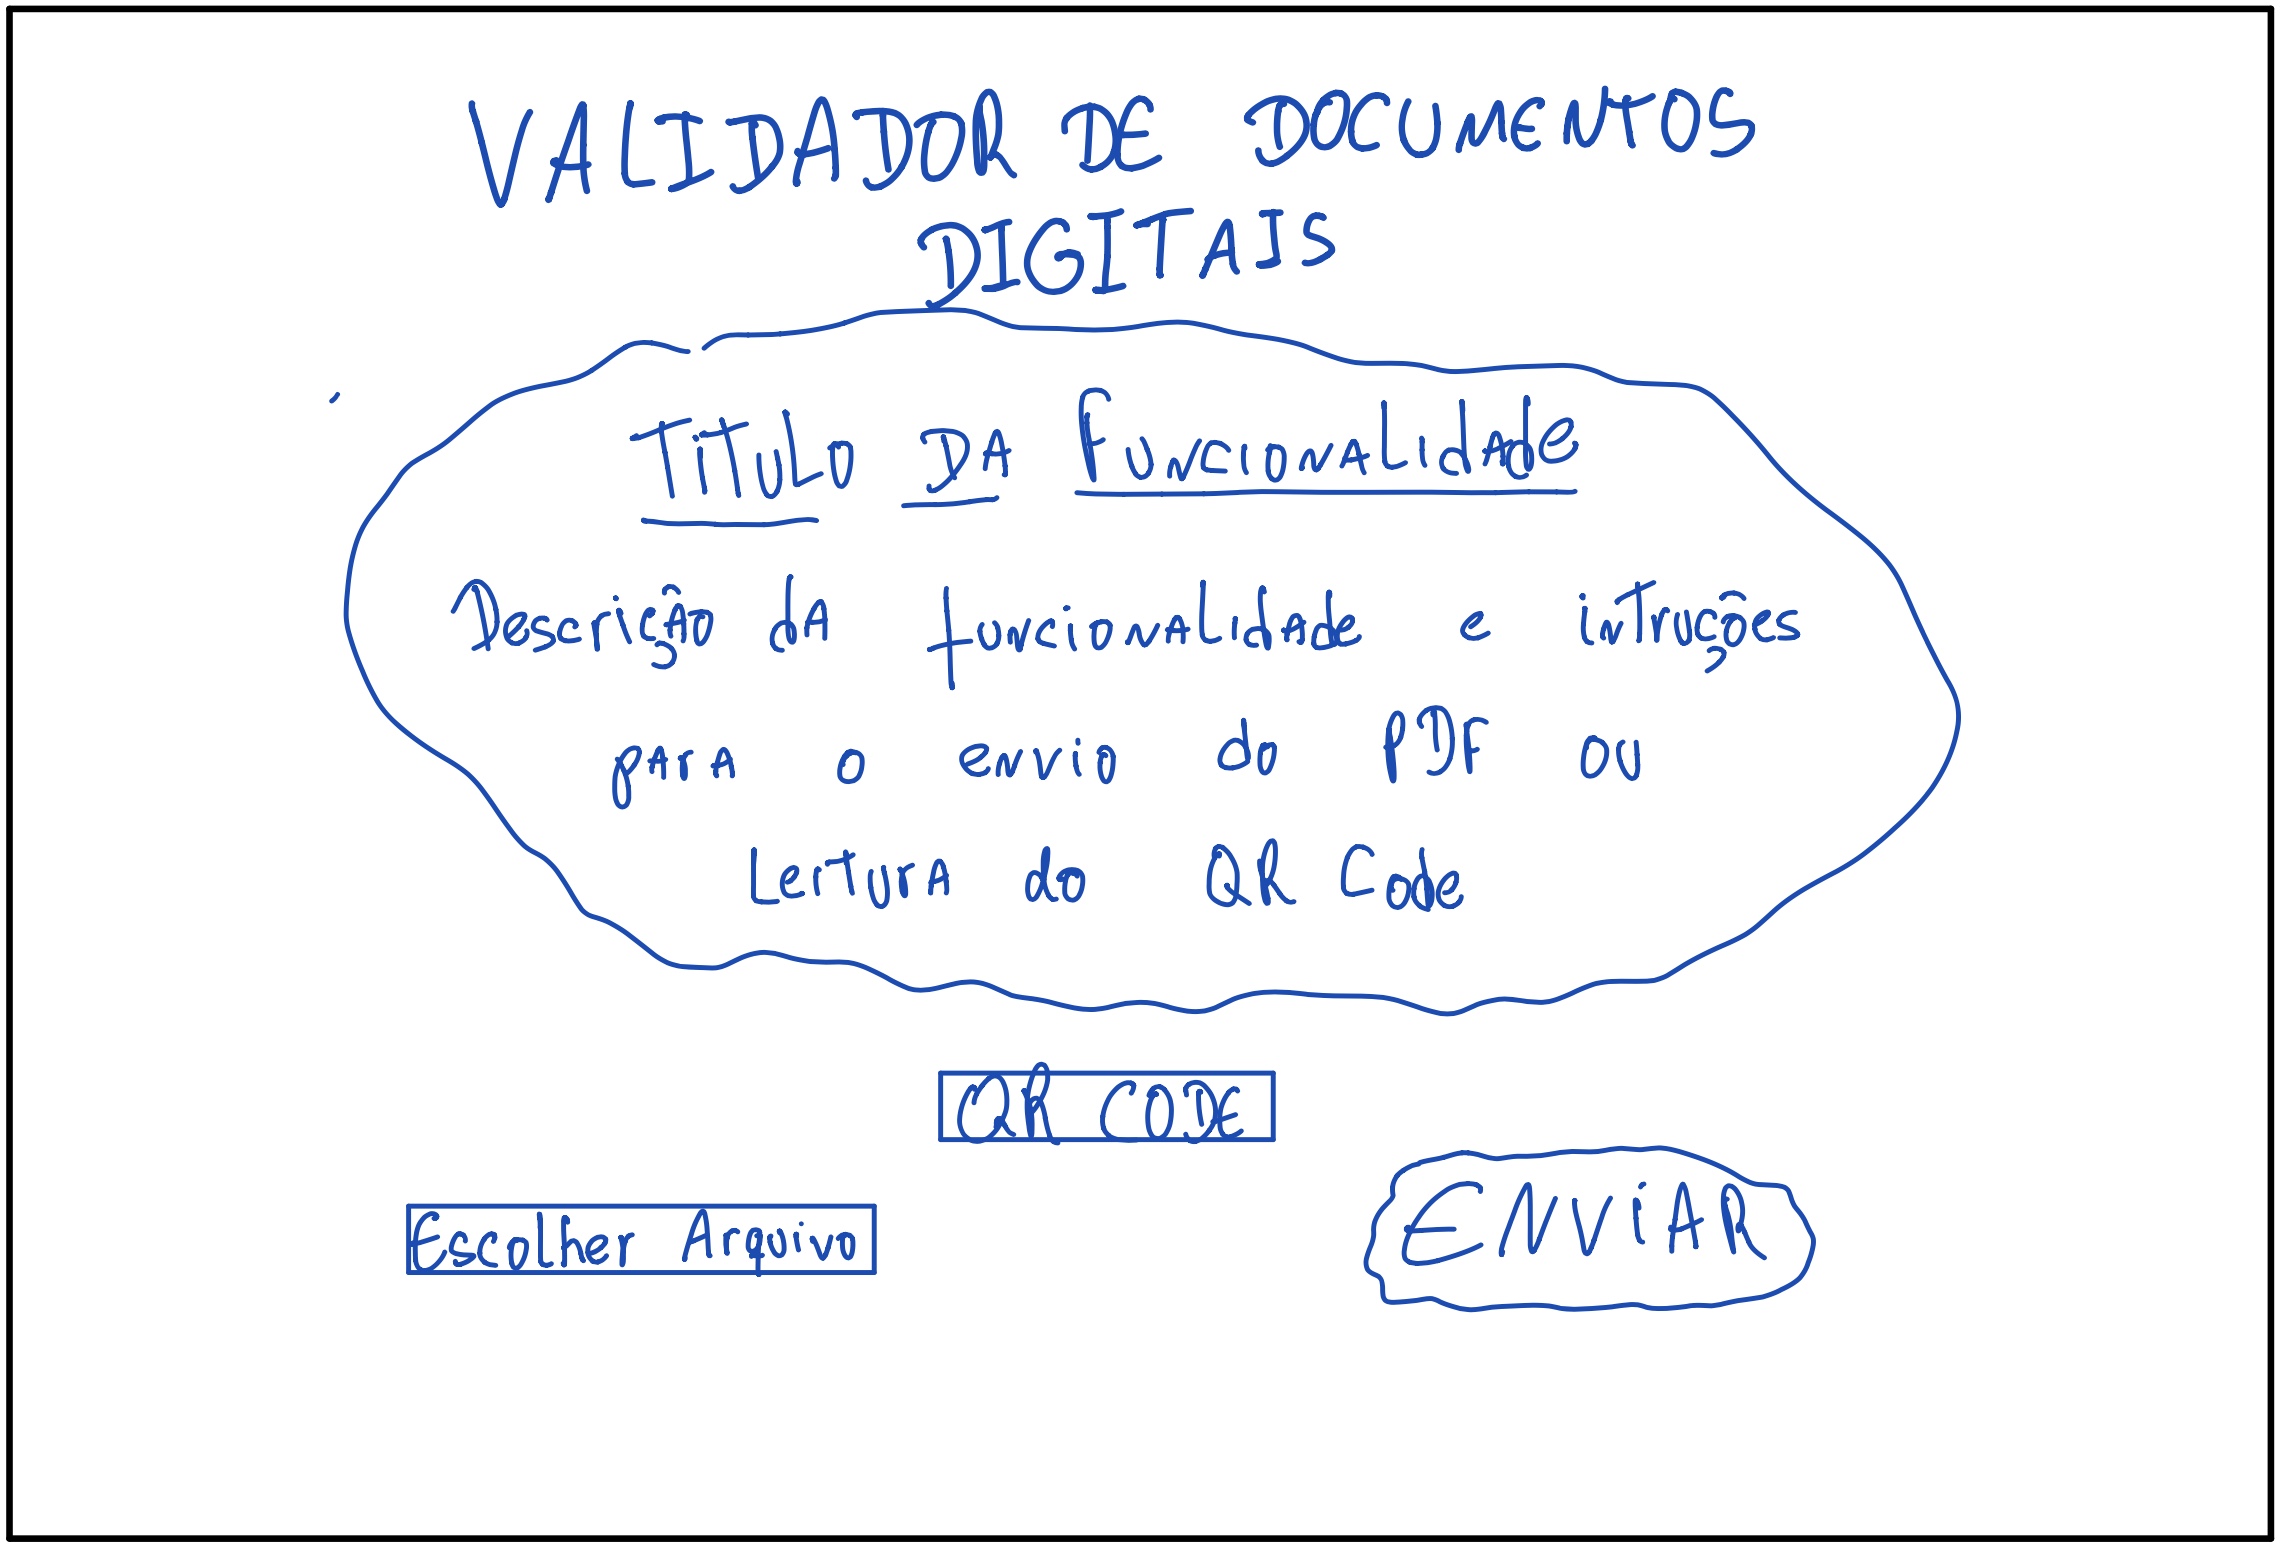 VALIDADOR DE DOCUMENTOS
DIGITAIS
TiTuLo DA FuncionALidAde
Descrição dA funcionAlidAde e inTruções
pArA o envio do PDF ou
LeiTurA do QR Code
QR CODE
Escolher Arquivo
ENViAR